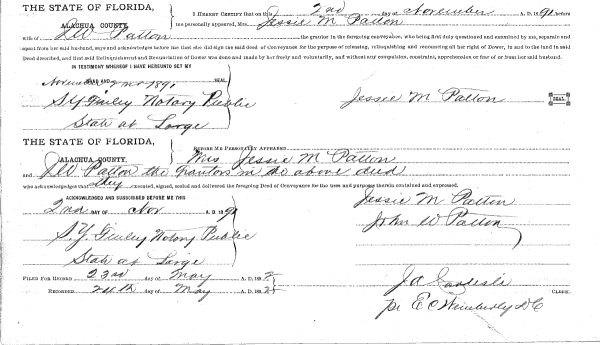 THE STATE OF FLORIDA,
ALACHUA COUNTY.
I HEREBY CERTIFY that on this 2nd day of November A. D. 1891 before
me personally appeared, Mrs. Jessie M Patton
wife of JW Patton the grantor in the foregoing conveyance, who being first duly questioned and examined by me, separate and
apart from her said husband, says and acknowledges before me that she did sign the said deed of Conveyance for the purpose of releasing, relinquishing and renouncing all her right of Dower, in and to the land in said
Deed described, and that said Relinquishment and Renunciation of Dower was done and made by her freely and voluntarily, and without any compulsion, constraint, apprehension or fear of or from her said husband.
IN TESTIMONY WHEREOF I HAVE HEREUNTO SET MY
HAND AND SEAL
November 2nd 1891
S. Y. Finley Notary Public
State at Large
Jessie M Patton SEAL
THE STATE OF FLORIDA,
ALACHUA COUNTY.
BEFORE ME PERSONALLY APPEARED
Mrs Jessie M Patton
and JW Patton the grantors in the above deed
who acknowledges that they executed, signed, sealed and delivered the foregoing Deed of Conveyance for the uses and purposes therein contained and expressed.
ACKNOWLEDGED AND SUBSCRIBED BEFORE ME THIS
2nd DAY OF Nov A. D. 1891
S. Y. Finley Notary Public
State at Large
Jessie M Patton
John W Patton
FILED FOR RECORD 23rd day of May A. D. 1892
RECORDED 24th day of May A. D. 1892
J A Carlisle CLERK.
pr E C Wimberly DC